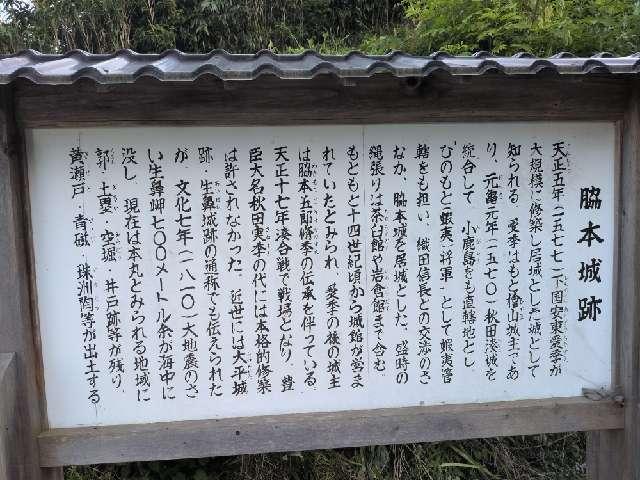 脇本城跡
天正五年(一五七七)下国安東愛季が
大規模に修築し居城とした城として
知られる。愛季はもと檜山城主であ
り、元亀元年(一五七〇)秋田湊城を
統合して、小鹿島をも直轄地とし、
「ひのもと蝦夷」将軍」として蝦夷管
轄をも担い、織田信長との交渉のさ
なか、脇本城を居城とした。盛時の
縄張りは茶臼館や岩倉館まで含む。
もともと十四世紀頃から城館が営ま
れていたとみられ、愛季の後の城主
は脇本五郎脩季の伝承を伴っている。
天正十七年湊合戦で戦場となり、豊
臣大名秋田実季の代には本格的修築
は許されなかった。近世には太平城
跡・生鼻城跡の通称でも伝えられた
が、文化七年(一八一〇)大地震のさ
い生鼻岬七〇〇メートル余が海中に
没し、現在は本丸とみられる地域に
郭・土塁・空堀・井戸跡等が残り、
黄瀬戸・青磁・珠洲陶等が出土する。